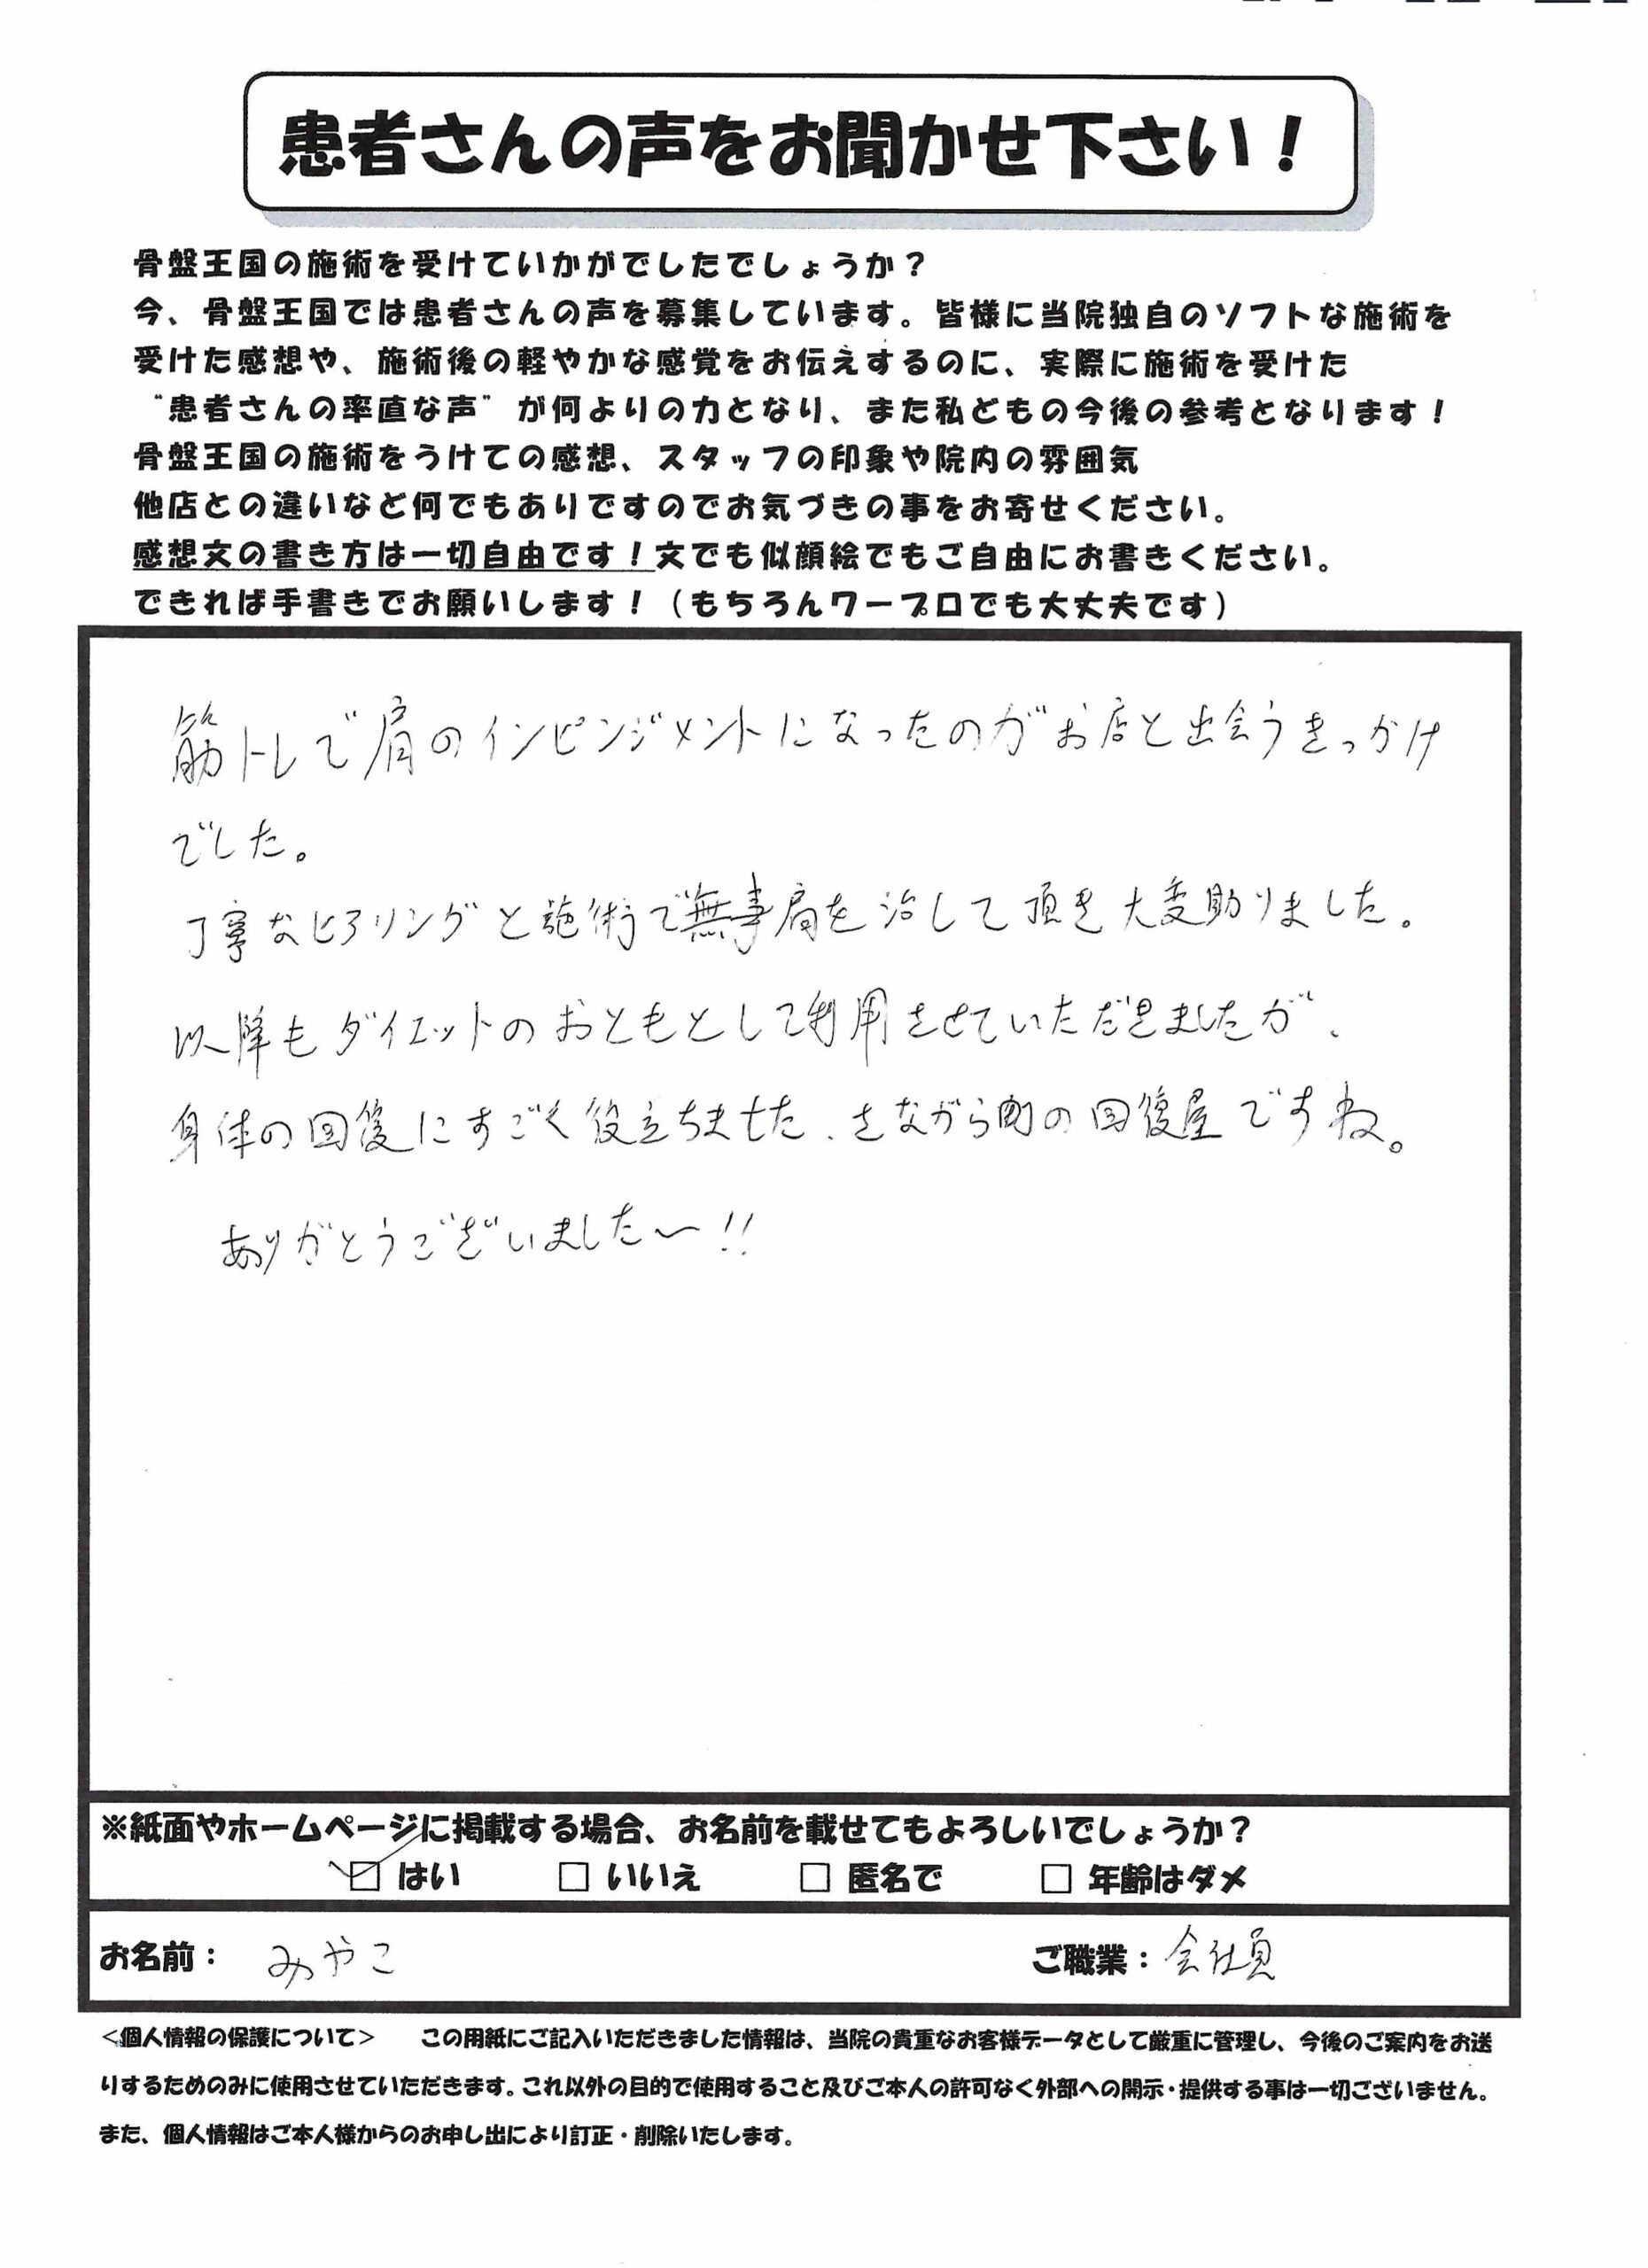 患者さんの声をお聞かせ下さい！
骨盤王国の施術を受けていかがでしたでしょうか？
今、骨盤王国では患者さんの声を募集しています。皆様に当院独自のソフトな施術を
受けた感想や、施術後の軽やかな感覚をお伝えするのに、実際に施術を受けた
“患者さんの率直な声”が何よりの力となり、また私どもの今後の参考となります！
骨盤王国の施術をうけての感想、スタッフの印象や院内の雰囲気
他店との違いなど何でもありですのでお気づきの事をお寄せください。
感想文の書き方は一切自由です！文でも似顔絵でもご自由にお書きください。
できれば手書きでお願いします！（もちろんワープロでも大丈夫です）
筋トレで肩のインピンジメントになったのがお店と出会うきっかけ
でした。
丁寧なヒアリングと施術で無事肩を治して頂き大変助りました。
以降もダイエットのおともとして利用させていただきましたが、
身体の回復にすごく役立ちました、さながら町の回復屋ですね。
ありがとうございました〜!!
※紙面やホームページに掲載する場合、お名前を載せてもよろしいでしょうか？
☑ はい □ いいえ □ 匿名で □ 年齢はダメ
お名前： みやこ ご職業：会社員
＜個人情報の保護について＞ この用紙にご記入いただきました情報は、当院の貴重なお客様データとして厳重に管理し、今後のご案内をお送
りするためのみに使用させていただきます。これ以外の目的で使用すること及びご本人の許可なく外部への開示・提供する事は一切ございません。
また、個人情報はご本人様からのお申し出により訂正・削除いたします。